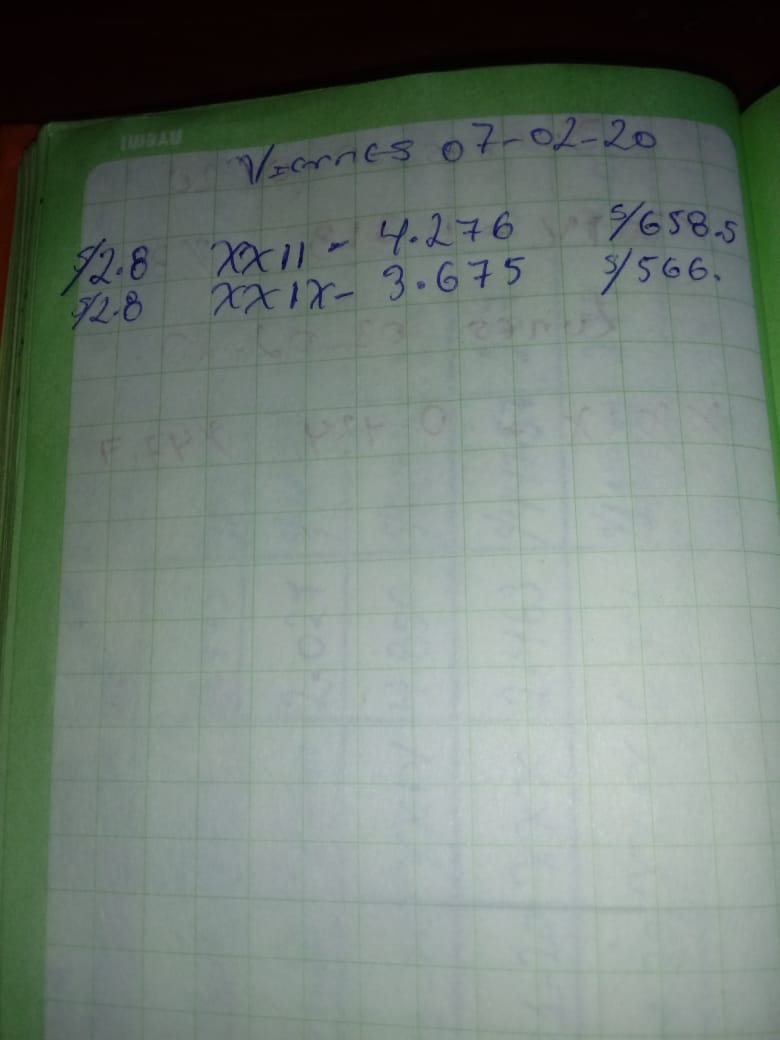 Viernes 07-02-20
s/2.8 XXII - 4.276 s/658.5
s/2.8 XXIX- 3.675 s/566.